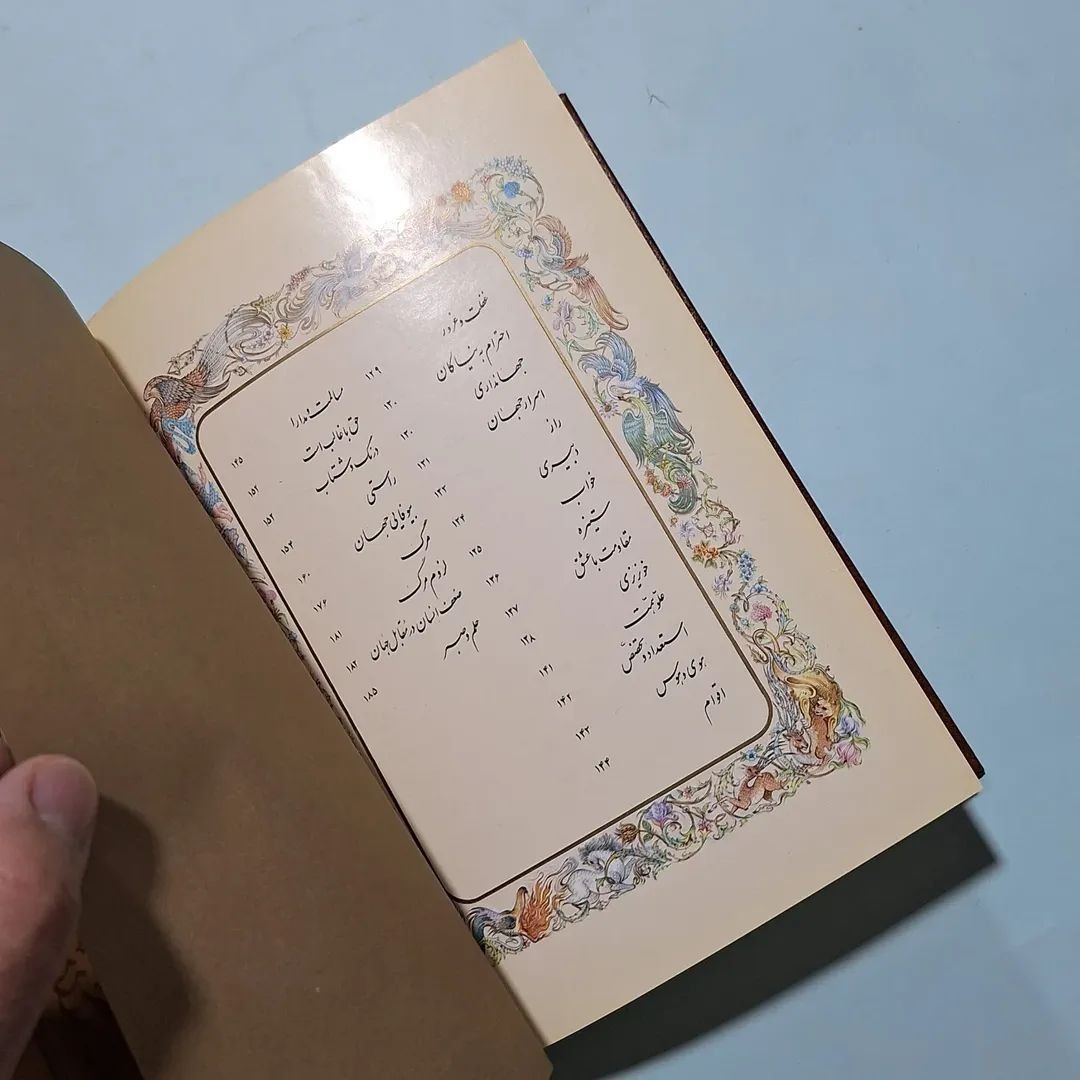 غفلت و غرور ۱۲۹
احترام به نیاکان ۱۳۰
جهانداری ۱۳۰
اسرار جهان ۱۳۱
راز ۱۳۳
دبیری ۱۳۴
خواب ۱۳۵
ستیزه ۱۳۶
مقاومت با عشق ۱۳۷
خونریزی ۱۳۸
علو همّت ۱۴۱
استعداد و تخصّص ۱۴۲
هوی و هوس ۱۴۳
اقوام ۱۴۴
مسالمت و مدارا ۱۴۵
حق با غالب است ۱۵۲
درنگ و شتاب ۱۵۲
راستی ۱۵۴
بیوفایی جهان ۱۶۰
مرگ ۱۷۶
لزوم مرگ ۱۸۱
ضعف انسان در مقابل جهان ۱۸۲
حلم و صبر ۱۸۵